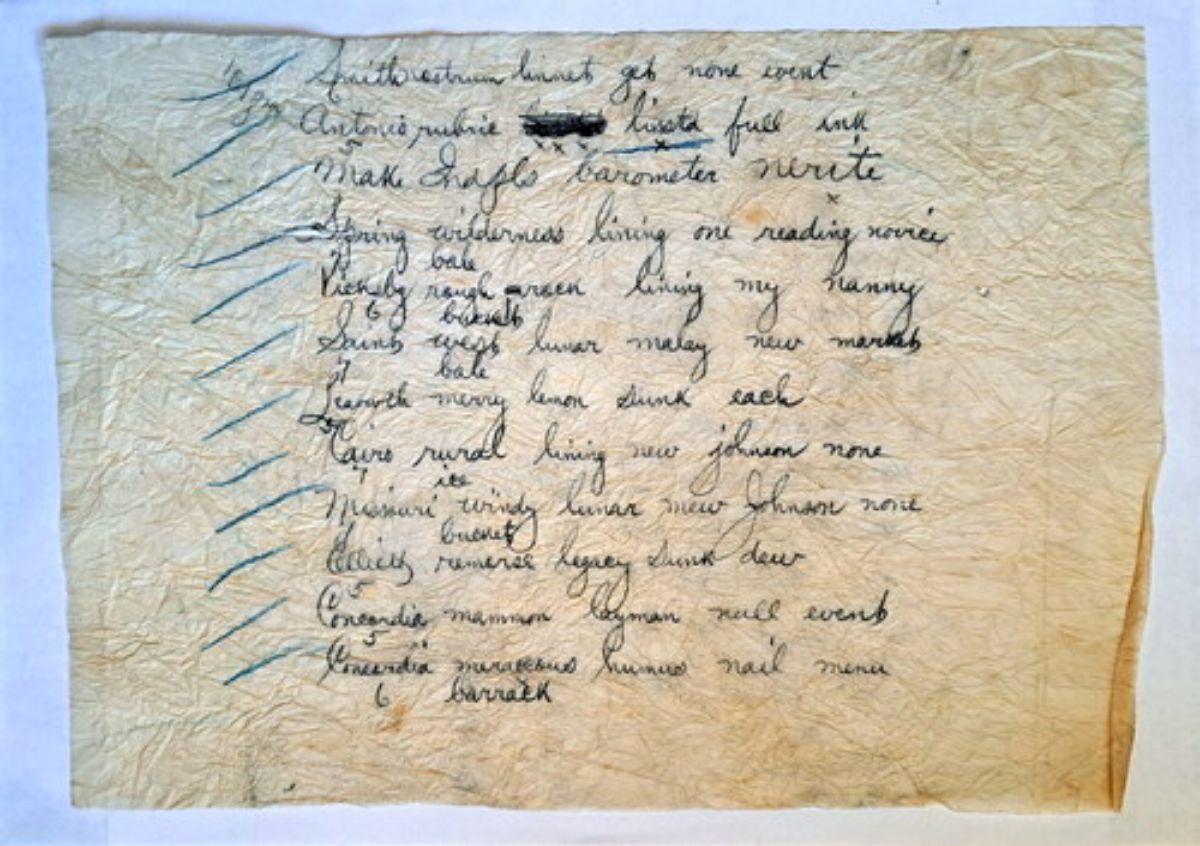 Smith nostrum linnet get none event
Antonio rubric lissta full ink
5
Make Indpls barometer nerite
Spring wilderness lining one reading novice
7 bale
Vicksbg rough rack lining my nanny
6 bucket
Saints west lunar malay new market
7 bale
Leavwth merry lemon sunk each
Cairo rural lining new johnson none
7 ice
Missouri windy lunar mew Johnson none
bucket
Ellictt remorse legacy sunk dew
5
Concordia mammon layman null event
5
Concordia meraceous humus nail menu
6 barrack